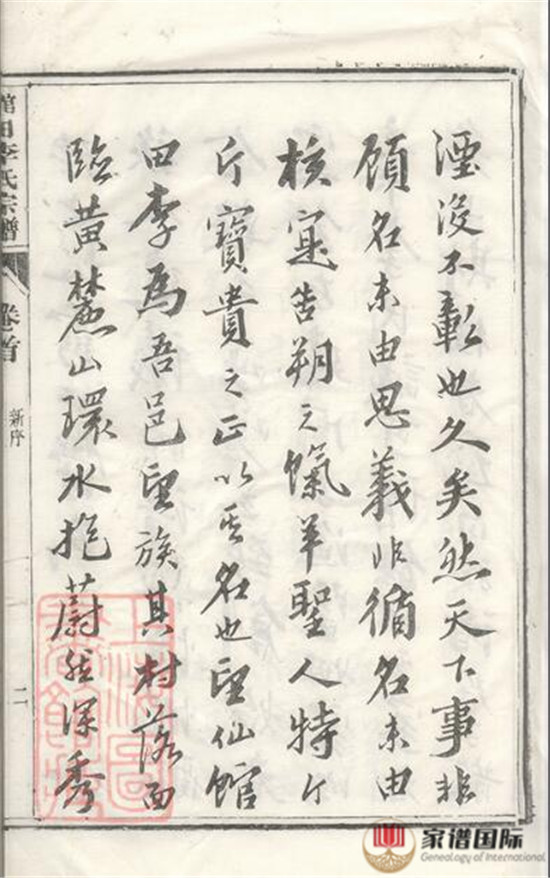 湮没不彰也久矣然天下事非
顧名末由思義非循名末由
核寔告朔之餼羊聖人特斤
斤寶貴之正以其名也望仙館
田李為吾邑望族其村落面
臨黄麓山環水抱蔚然深秀
館田李氏宗譜
卷首
新序
二
上海圖書館藏
家谱国际
Genealogy of International